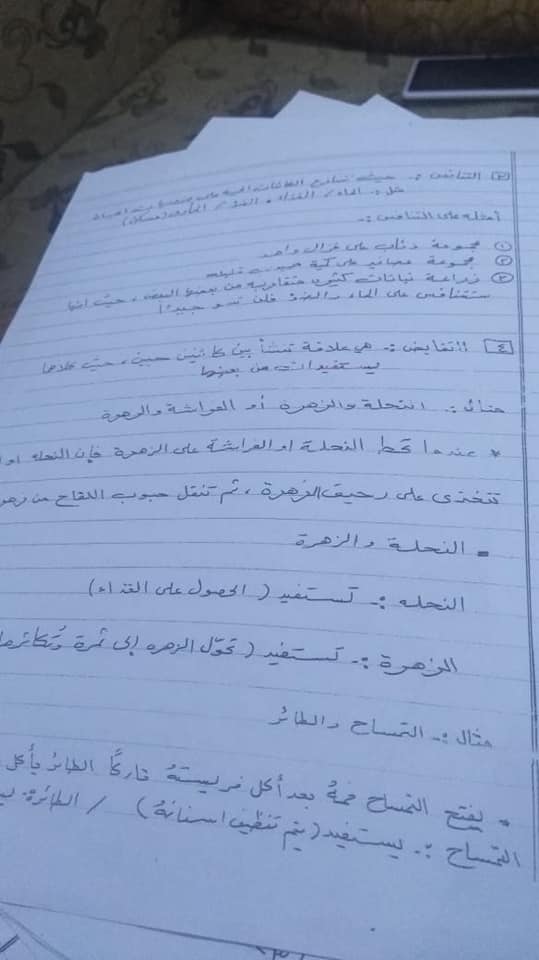 [٣] التنافس :- حيث تتنافس الكائنات الحية على
مثل :- الماء / الغذاء / المأوى (مسكن)
أمثلة على التنافس :-
① مجموعة ذئاب على غزال واحد
② مجموعة عصافير على كمية حبوب قليلة
③ زراعة نباتات كثيرة متقاربة من بعضها البعض ، حيث انها
ستتنافس على الماء والضوء فلن تنمو جيداً
[٤] التقايض :- هي علاقة تنشأ بين كائنين حيين ، حيث كلاهما
يستفيدان من بعضهما
مثال :- النحلة والزهرة أو الفراشة والزهرة
* عندما تحط النحلة او الفراشة على الزهرة فإن النحله او
تتغذى على رحيق الزهرة ، ثم تنقل حبوب اللقاح من
▪ النحلة والزهرة
النحله :- تستفيد ( الحصول على الغذاء )
الزهرة :- تستفيد ( تحوّل الزهره إلى ثمرة وتكاثرها
مثال :- التمساح والطائر
• يفتح التمساح فمهُ بعد أكل فريستهُ تاركاً الطائر يأكل
التمساح :- يستفيد ( يتم تنظيف اسنانهُ ) / الطائر :-